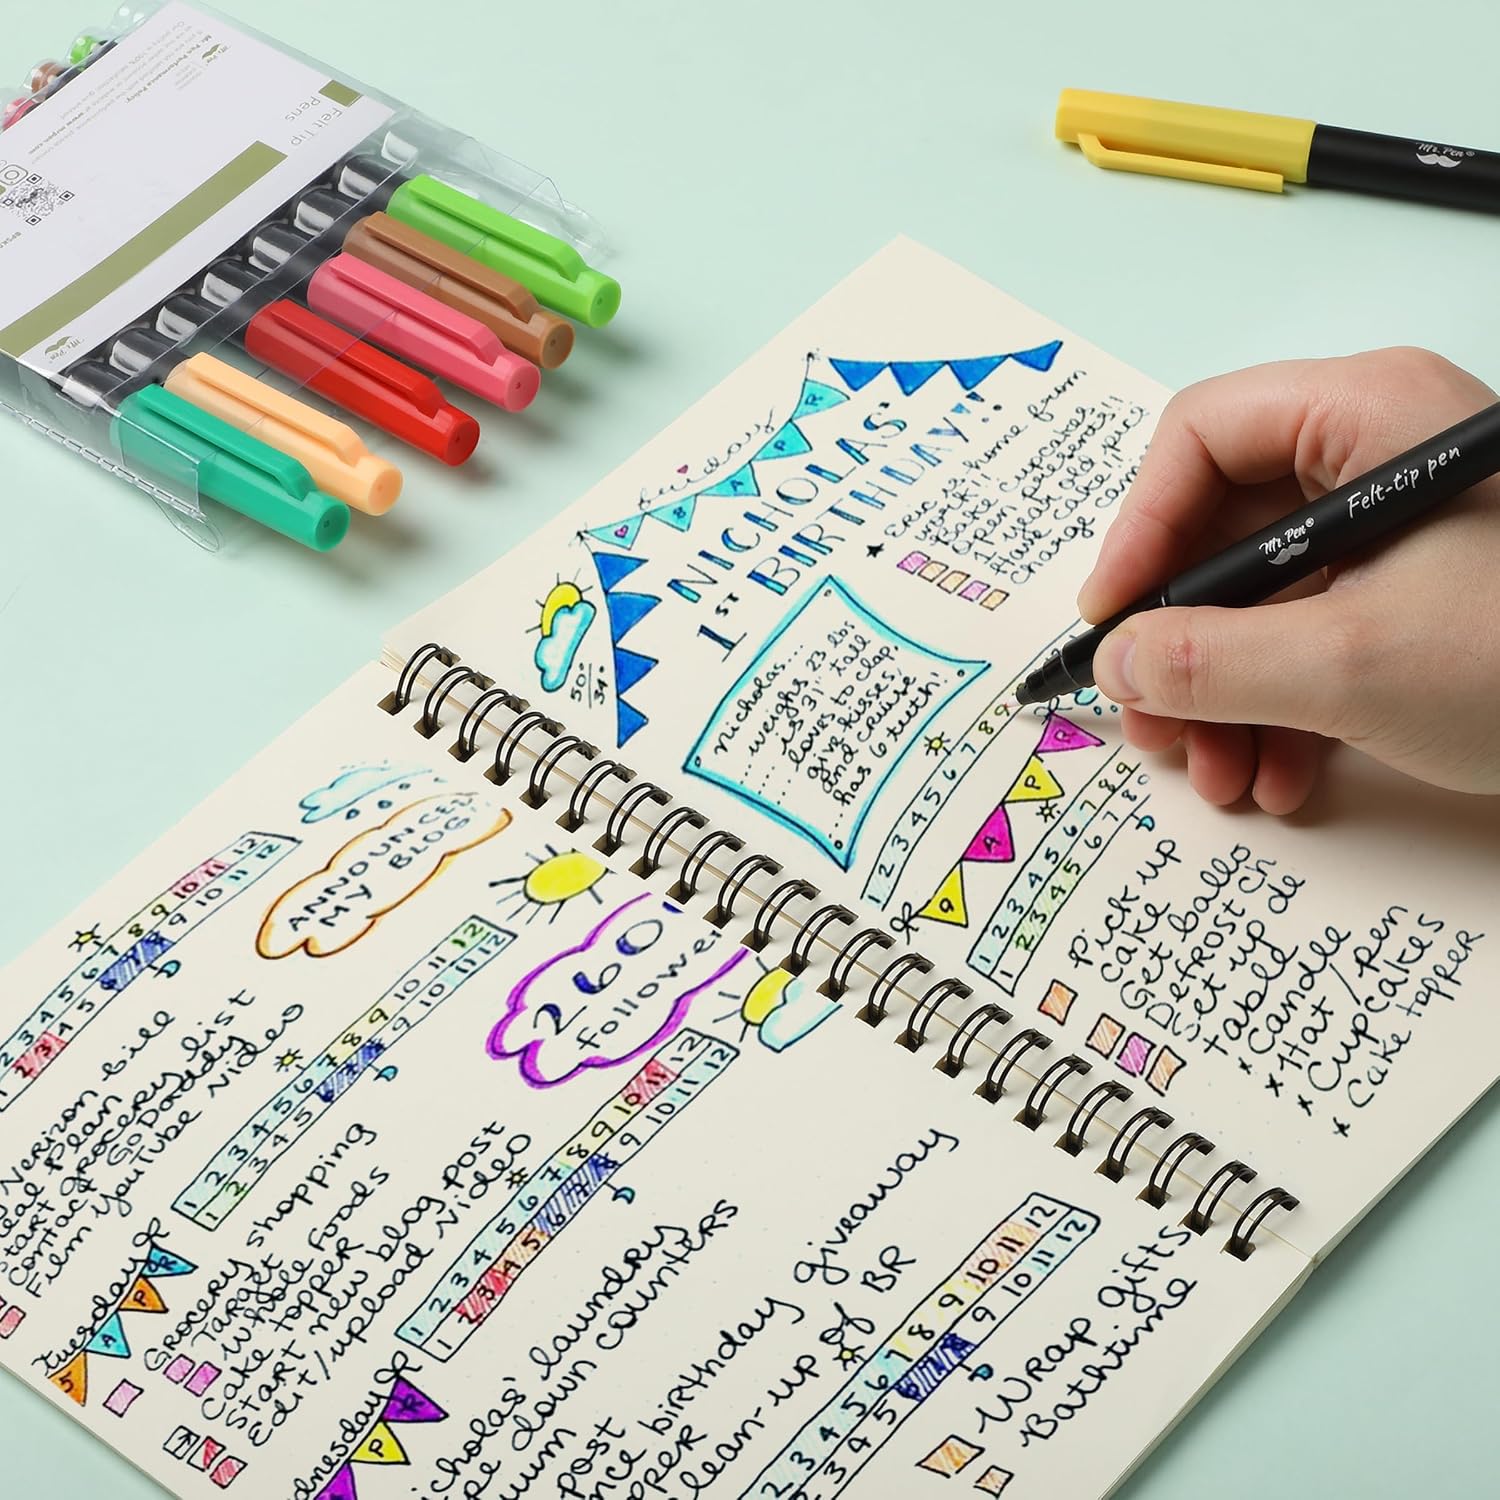 Felt Tip
Pens
Mr. Pen Performance Policy:
Mr. Pen
Mr. Pen®
Mr. Pen® Felt-tip pen
friday
8 A P R
NICHOLAS'
1ST BIRTHDAY!!
50°
34°
Eric is home from
work!!
Bake cupcakes
Open presents!!
1 year old pic!
Have cake!!
Charge
Nicholas...
... weighs 23 lbs
... is 31" tall
... loves to clap,
give kisses,
and cruise
... has 6 teeth!
1 2 3 4 5 6 7 8 9
9 A P R
1 2 3 4 5 6 7 8 9
1 2 3 4 5 6 7 8
Pick up
cake
Get
Defrost
Set up
table
x Candle
x Hat/pen
x Cupcakes
x Cake topper
ANNOUNCE
MY BLOG!
2 3 4 5 6 7 8 9 10 11 12
1 2 3 4 5 6 7 8 9 10 11 12
Verizon bill
meal plan
Start grocery list
Contact GoDaddy
Film YouTube video
tuesday
5 A P R
1 2 3 4 5 6 7 8 9 10 11 12
1 2 3 4 5 6 7 8 9 10 11 12
Grocery shopping
Target
Whole Foods
Cake topper
Start new blog post
Edit/upload video
260
follower
1 2 3 4 5 6 7 8 9 10 11 12
1 2 3 4 5 6 7 8 9 10 11 12
A P R
laundry
down counters
post
birthday giveaway
clean-up of BR
1 2 3 4 5 6 7 8 9 10 11 12
1 2 3 4 5 6 7 8 9 10 11 12
Wrap gifts
Bathtime